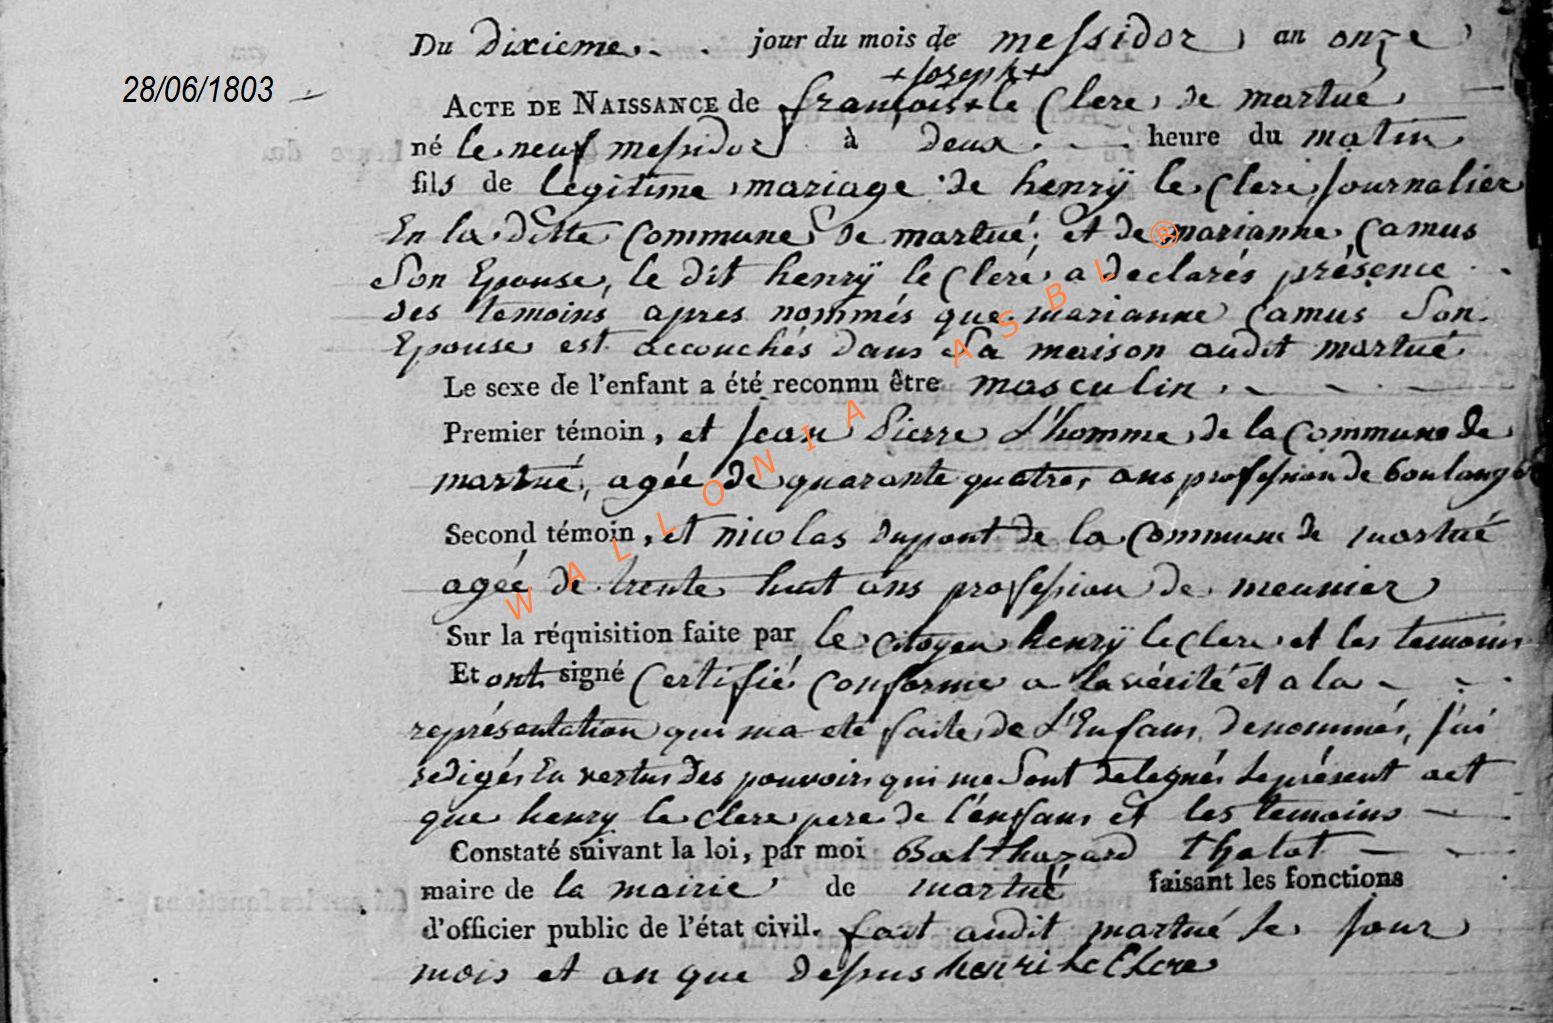 Du dixieme jour du mois de messidor an onze
28/06/1803
+ joseph +
Acte de Naissance de françois + le Clere de martué
né le neuf messidor à deux heure du matin
fils de legitime mariage de henrÿ le Clere Journalier
En la ditte Commune de martué, et de marianne Camus
Son Epouse, le dit henrÿ le Cleré a declarés présence
des temoins apres nommés que marianne Camus Son
Epouse est accouchés dans Sa maison audit martué
Le sexe de l'enfant a été reconnu être masculin
Premier témoin, et Jean Pierre L'homme de la Commune de
martué, agée de quarante quatre ans profession de boulanger
Second témoin, et nicolas dupont de la Commune de martué
agée de trente huit ans profession de meunier
Sur la réquisition faite par le citoyen henrÿ le Clere et les temoins
Et ont signé Certifié Conforme a la vérité et a la
représentation qui ma eté faite de L'Enfans denommés, J'ai
redigés En vertus des pouvoirs qui me Sont delegués le présent act
que henry le Clere pere de l'enfans et les temoins
Constaté suivant la loi, par moi Balthazard thalot
maire de la mairie de martué faisant les fonctions
d'officier public de l'état civil. fait audit martué le Jour
mois et an que dessus henri le Clere
WALLONIA ASBL ®